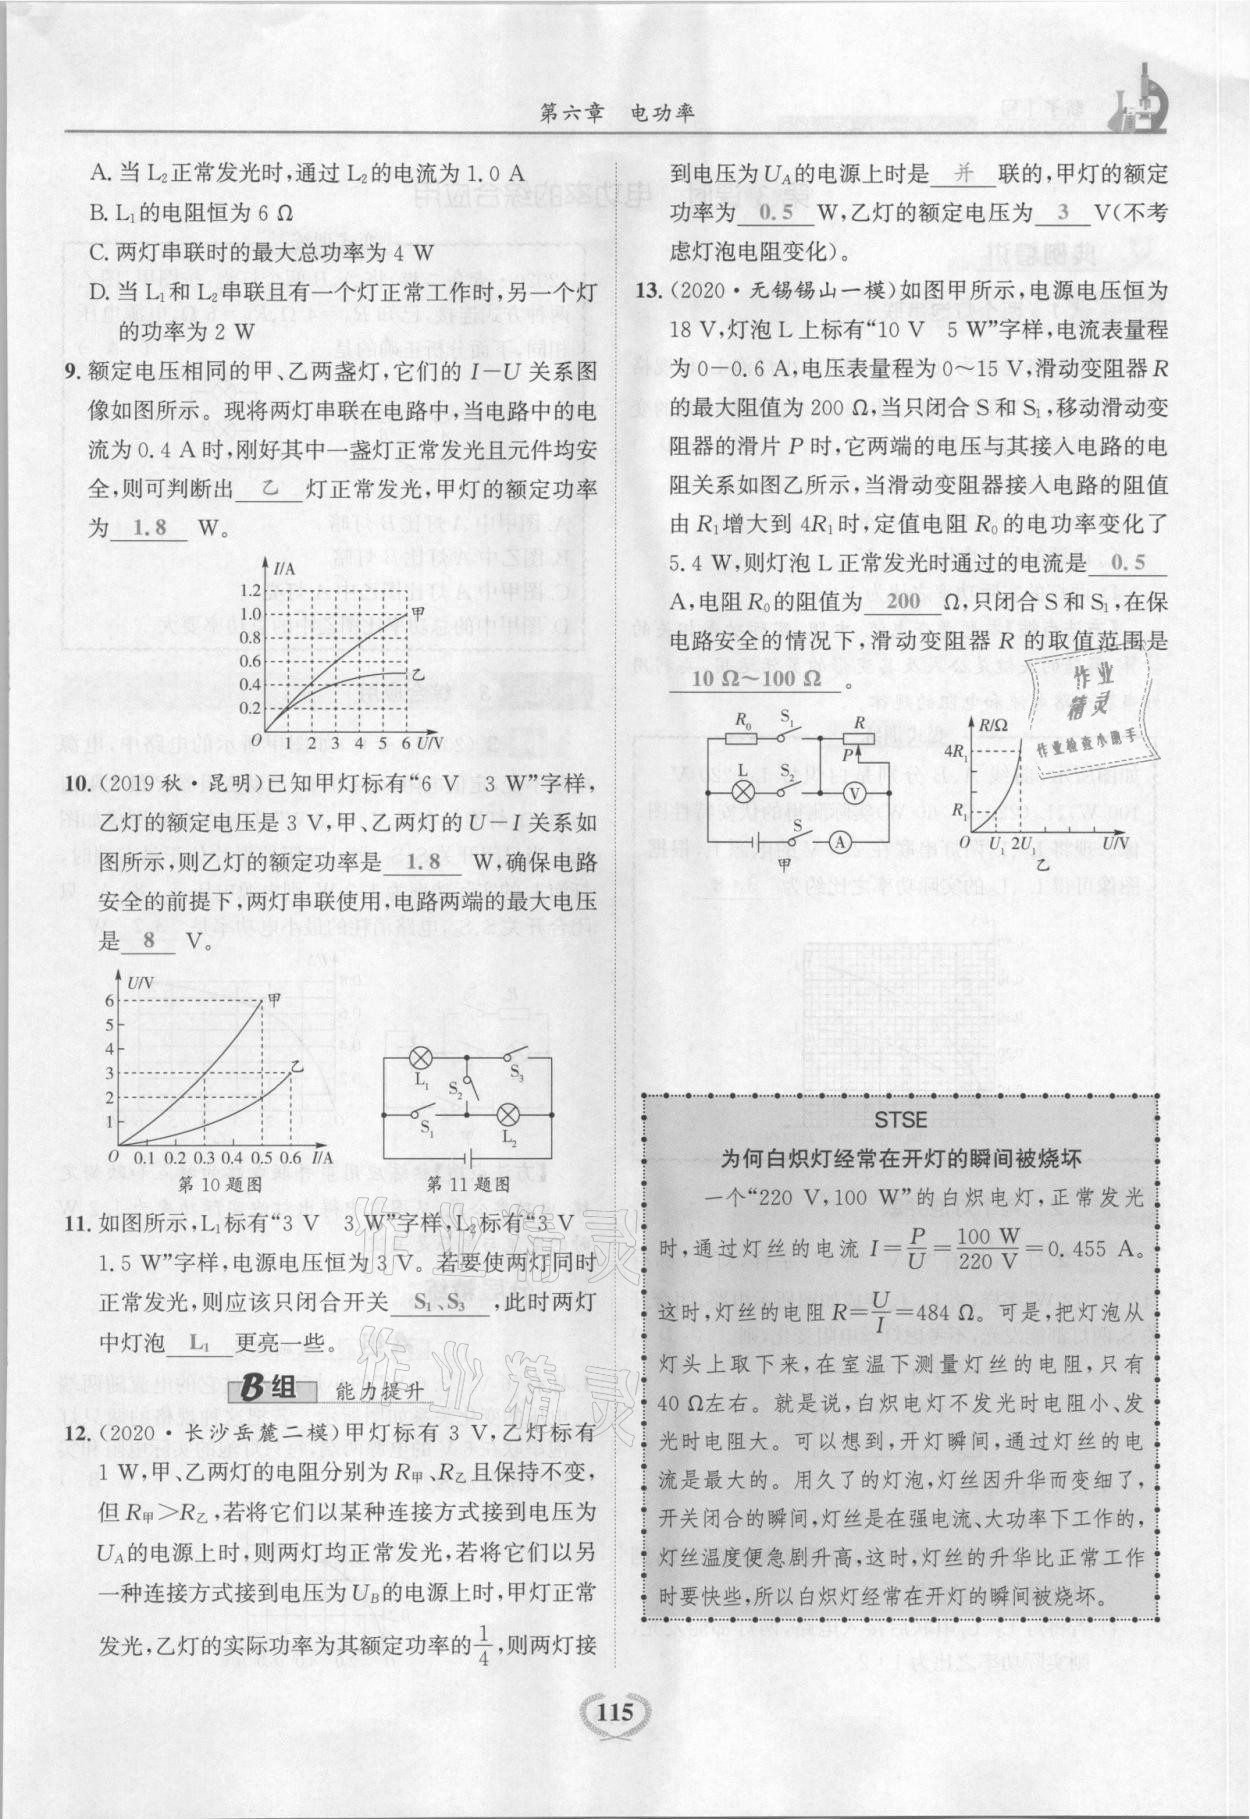 第六章　电功率
A. 当 L₂正常发光时,通过 L₂的电流为 1.0 A
B. L₁的电阻恒为 6 Ω
C. 两灯串联时的最大总功率为 4 W
D. 当 L₁和 L₂串联且有一个灯正常工作时,另一个灯
的功率为 2 W
9. 额定电压相同的甲、乙两盏灯,它们的 I－U 关系图
像如图所示。现将两灯串联在电路中,当电路中的电
流为 0.4 A 时,刚好其中一盏灯正常发光且元件均安
全,则可判断出 乙 灯正常发光,甲灯的额定功率
为 1.8 W。
I/A
1.2
1.0
0.8
0.6
0.4
0.2
O 1 2 3 4 5 6 U/V
甲
乙
10. (2019秋·昆明)已知甲灯标有“6 V　3 W”字样,
乙灯的额定电压是 3 V,甲、乙两灯的 U－I 关系如
图所示,则乙灯的额定功率是 1.8 W,确保电路
安全的前提下,两灯串联使用,电路两端的最大电压
是 8 V。
U/V
6
5
4
3
2
1
O 0.1 0.2 0.3 0.4 0.5 0.6 I/A
甲
乙
第 10 题图
L₁ S₂ S₃
S₁ L₂
第 11 题图
11. 如图所示,L₁标有“3 V　3 W”字样,L₂标有“3 V
1.5 W”字样,电源电压恒为 3 V。若要使两灯同时
正常发光,则应该只闭合开关 S₁、S₃ ,此时两灯
中灯泡 L₁ 更亮一些。
B组　能力提升
12. (2020·长沙岳麓二模)甲灯标有 3 V,乙灯标有
1 W,甲、乙两灯的电阻分别为 R甲、R乙且保持不变,
但 R甲＞R乙,若将它们以某种连接方式接到电压为
U_A的电源上时,则两灯均正常发光,若将它们以另
一种连接方式接到电压为 U_B的电源上时,甲灯正常
发光,乙灯的实际功率为其额定功率的1/4,则两灯接
到电压为 U_A的电源上时是 并 联的,甲灯的额定
功率为 0.5 W,乙灯的额定电压为 3 V(不考
虑灯泡电阻变化)。
13. (2020·无锡锡山一模)如图甲所示,电源电压恒为
18 V,灯泡 L 上标有“10 V　5 W”字样,电流表量程
为 0－0.6 A,电压表量程为 0～15 V,滑动变阻器 R
的最大阻值为 200 Ω,当只闭合 S 和 S₁,移动滑动变
阻器的滑片 P 时,它两端的电压与其接入电路的电
阻关系如图乙所示,当滑动变阻器接入电路的阻值
由 R₁增大到 4R₁时,定值电阻 R₀的电功率变化了
5.4 W,则灯泡 L 正常发光时通过的电流是 0.5
A,电阻 R₀的阻值为 200 Ω,只闭合 S 和 S₁,在保
电路安全的情况下,滑动变阻器 R 的取值范围是
10 Ω～100 Ω 。
作业
精灵
作业检查小助手
R₀ S₁ R
P
L S₂ V
S A
甲
R/Ω
4R₁
R₁
O U₁ 2U₁ U/V
乙
STSE
为何白炽灯经常在开灯的瞬间被烧坏
一个“220 V,100 W”的白炽电灯,正常发光
时,通过灯丝的电流 I＝P/U＝100 W/220 V＝0.455 A。
这时,灯丝的电阻 R＝U/I＝484 Ω。可是,把灯泡从
灯头上取下来,在室温下测量灯丝的电阻,只有
40 Ω左右。就是说,白炽电灯不发光时电阻小、发
光时电阻大。可以想到,开灯瞬间,通过灯丝的电
流是最大的。用久了的灯泡,灯丝因升华而变细了,
开关闭合的瞬间,灯丝是在强电流、大功率下工作的,
灯丝温度便急剧升高,这时,灯丝的升华比正常工作
时要快些,所以白炽灯经常在开灯的瞬间被烧坏。
作业精灵
作业精灵
115